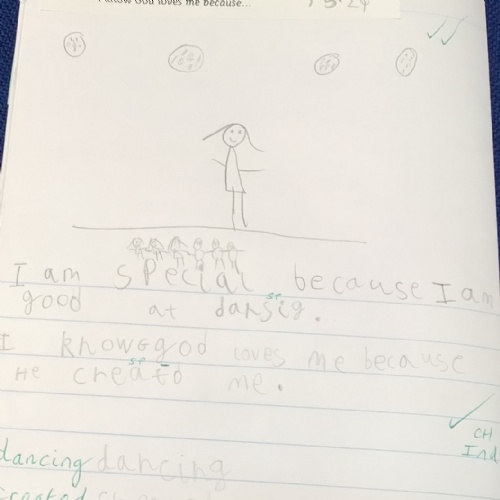 I know God loves me because...
I am special because I am
good at dansig.
sp
I know god loves me because
sp
He creatd me.
CH
Ind
dancing dancing
created